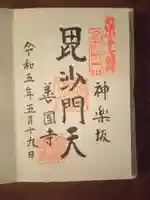 神楽坂
毘沙門天
善國寺
令和五年五月十九日